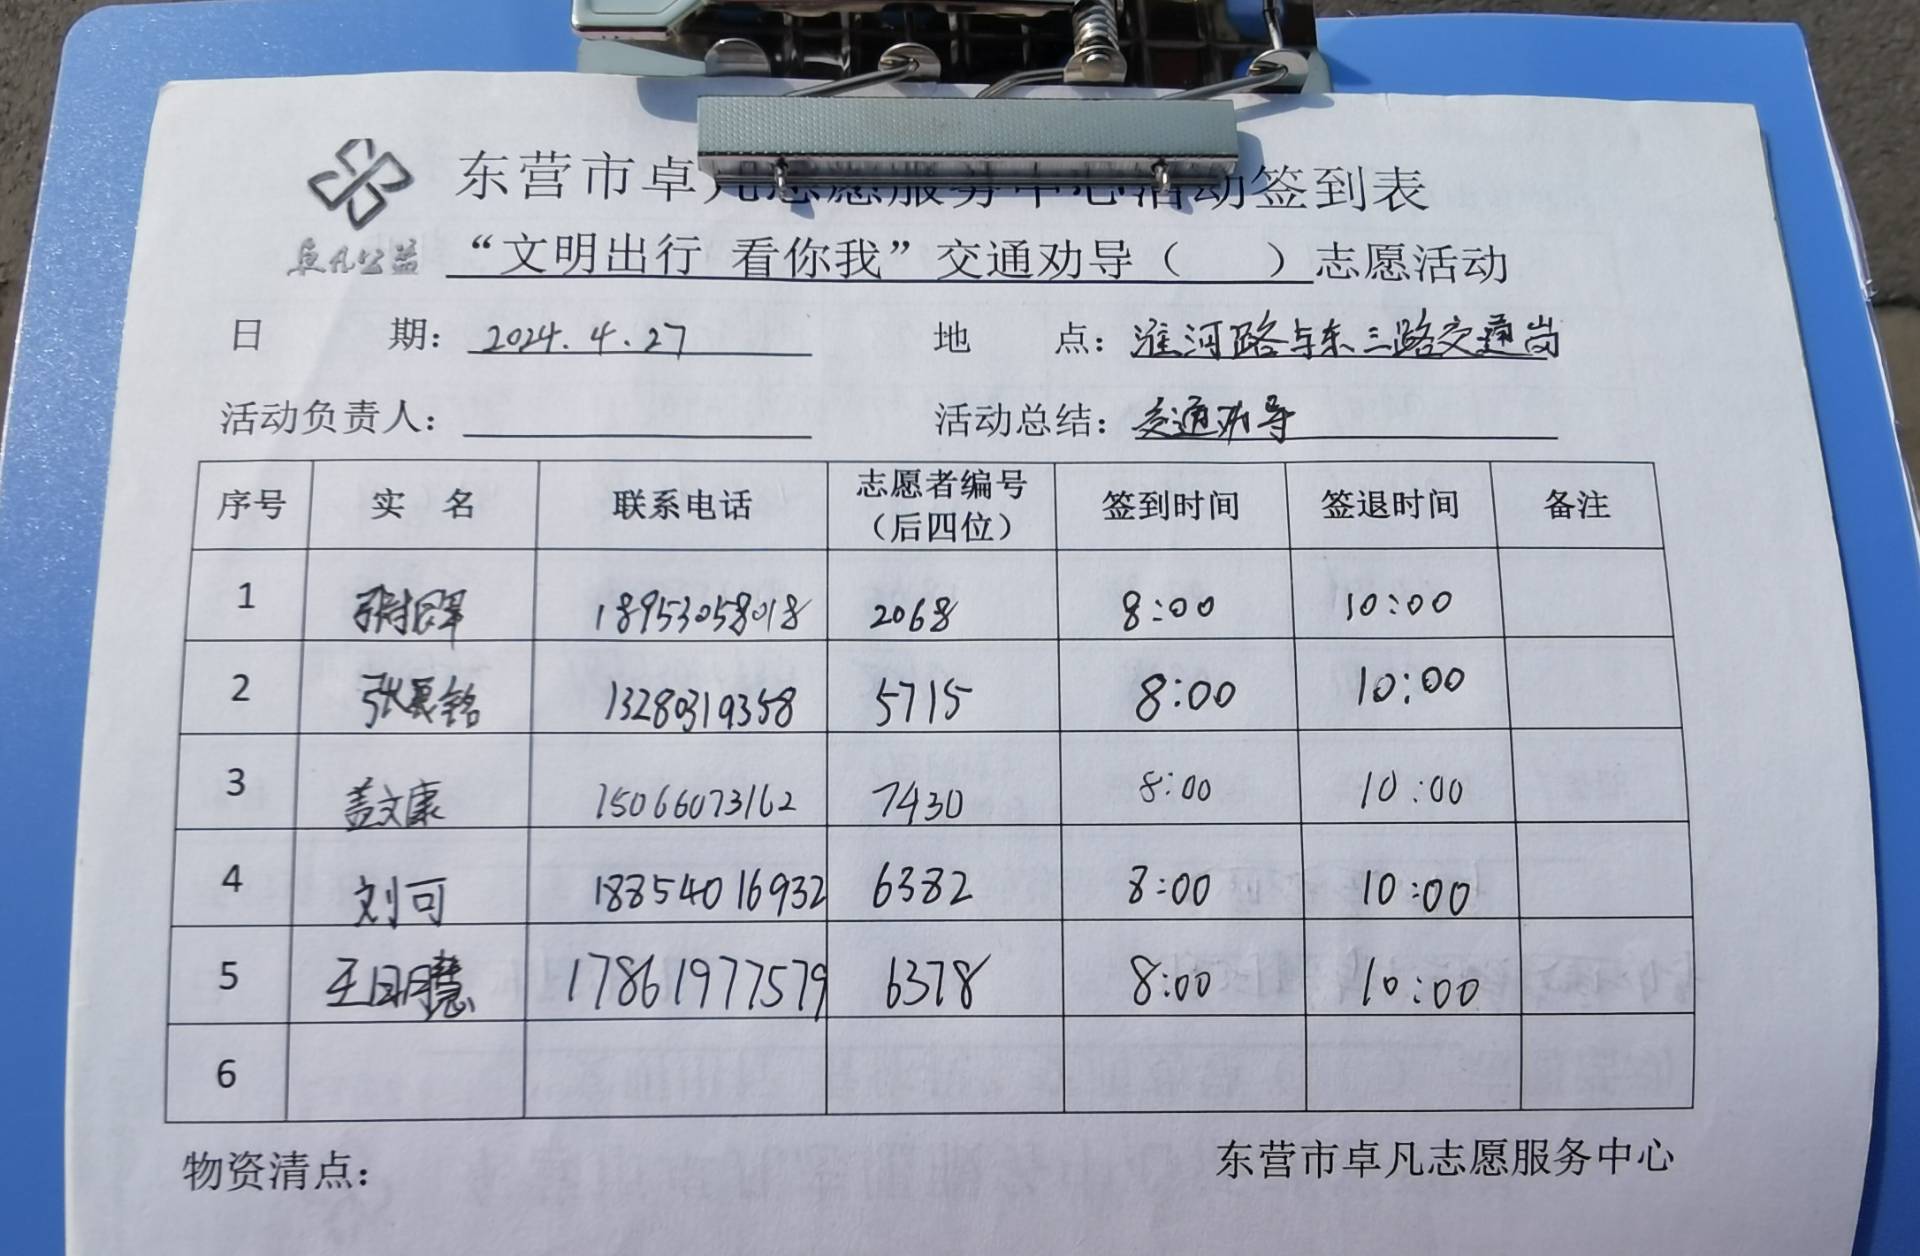 东营市卓凡志愿服务中心活动签到表
卓凡公益
“文明出行 看你我”交通劝导（ ）志愿活动
日 期：2024.4.27 地 点：淮河路与东三路交通岗
活动负责人： 活动总结：交通劝导
序号 实 名 联系电话 志愿者编号（后四位） 签到时间 签退时间 备注
1 18953058018 2068 8:00 10:00
2 张晨铭 13280319358 5715 8:00 10:00
3 盖文康 15066073162 7430 8:00 10:00
4 刘可 18854016932 6382 8:00 10:00
5 王明慧 17861977579 6378 8:00 10:00
6
物资清点： 东营市卓凡志愿服务中心